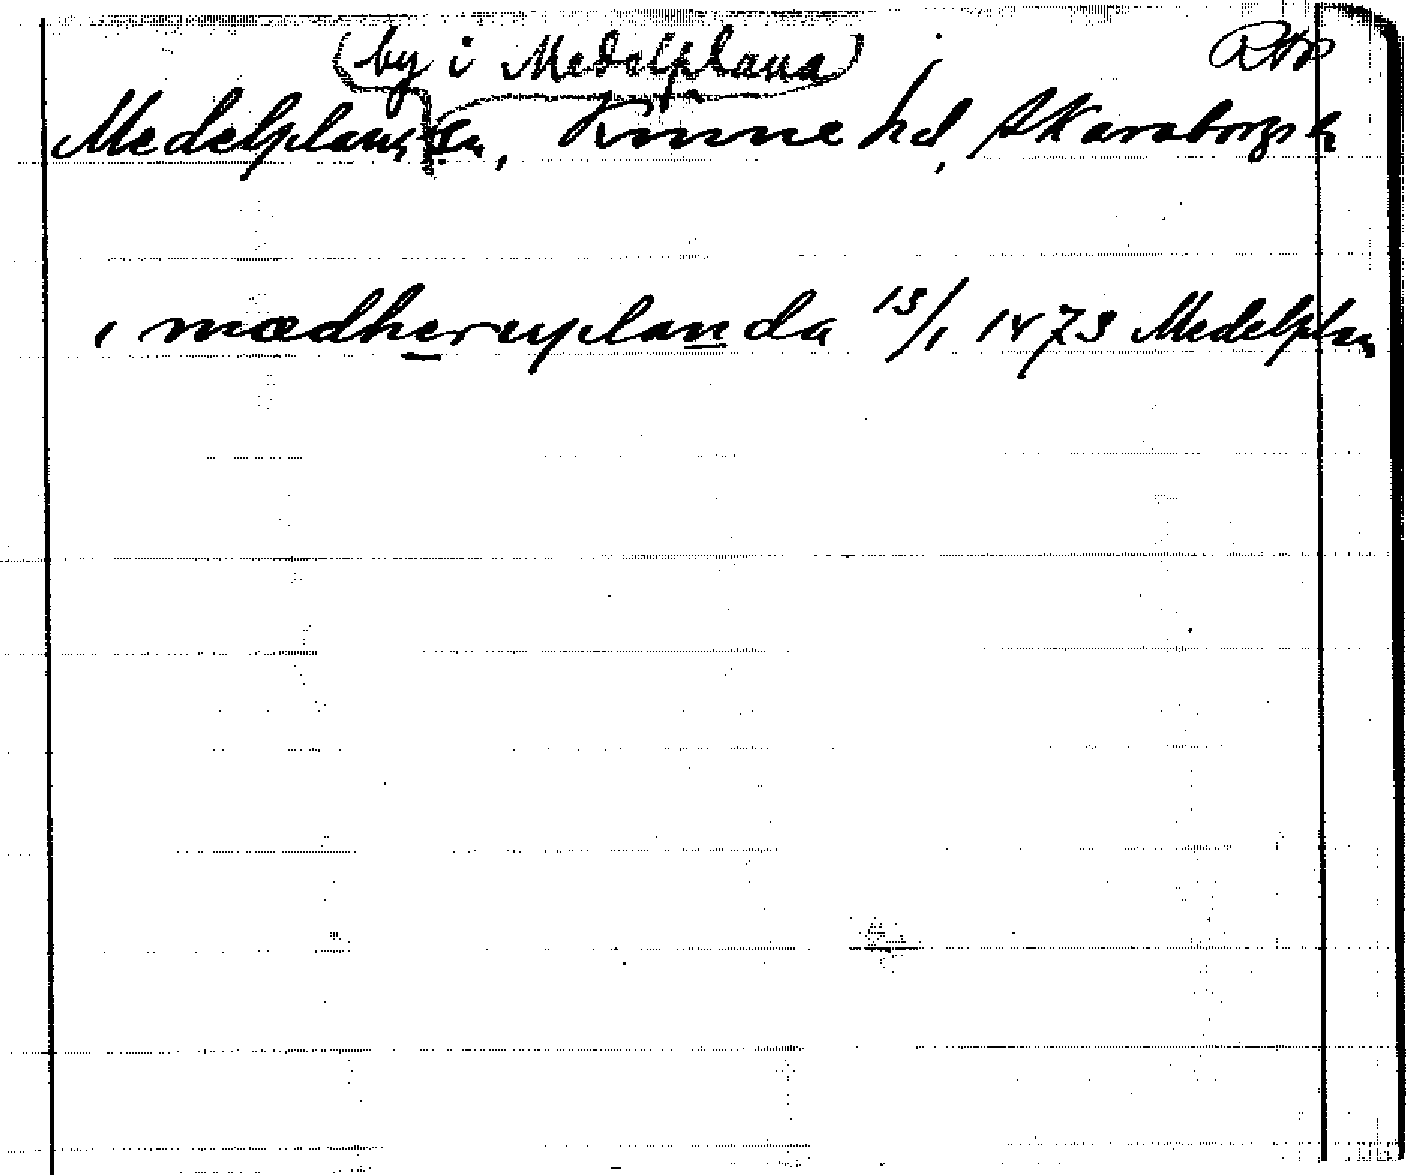 (by i Medelplana) RAP
Medelplana sn, Kinne hd, Skaraborgs l.
i mædheruplanda 15/1 1473 Medelplan